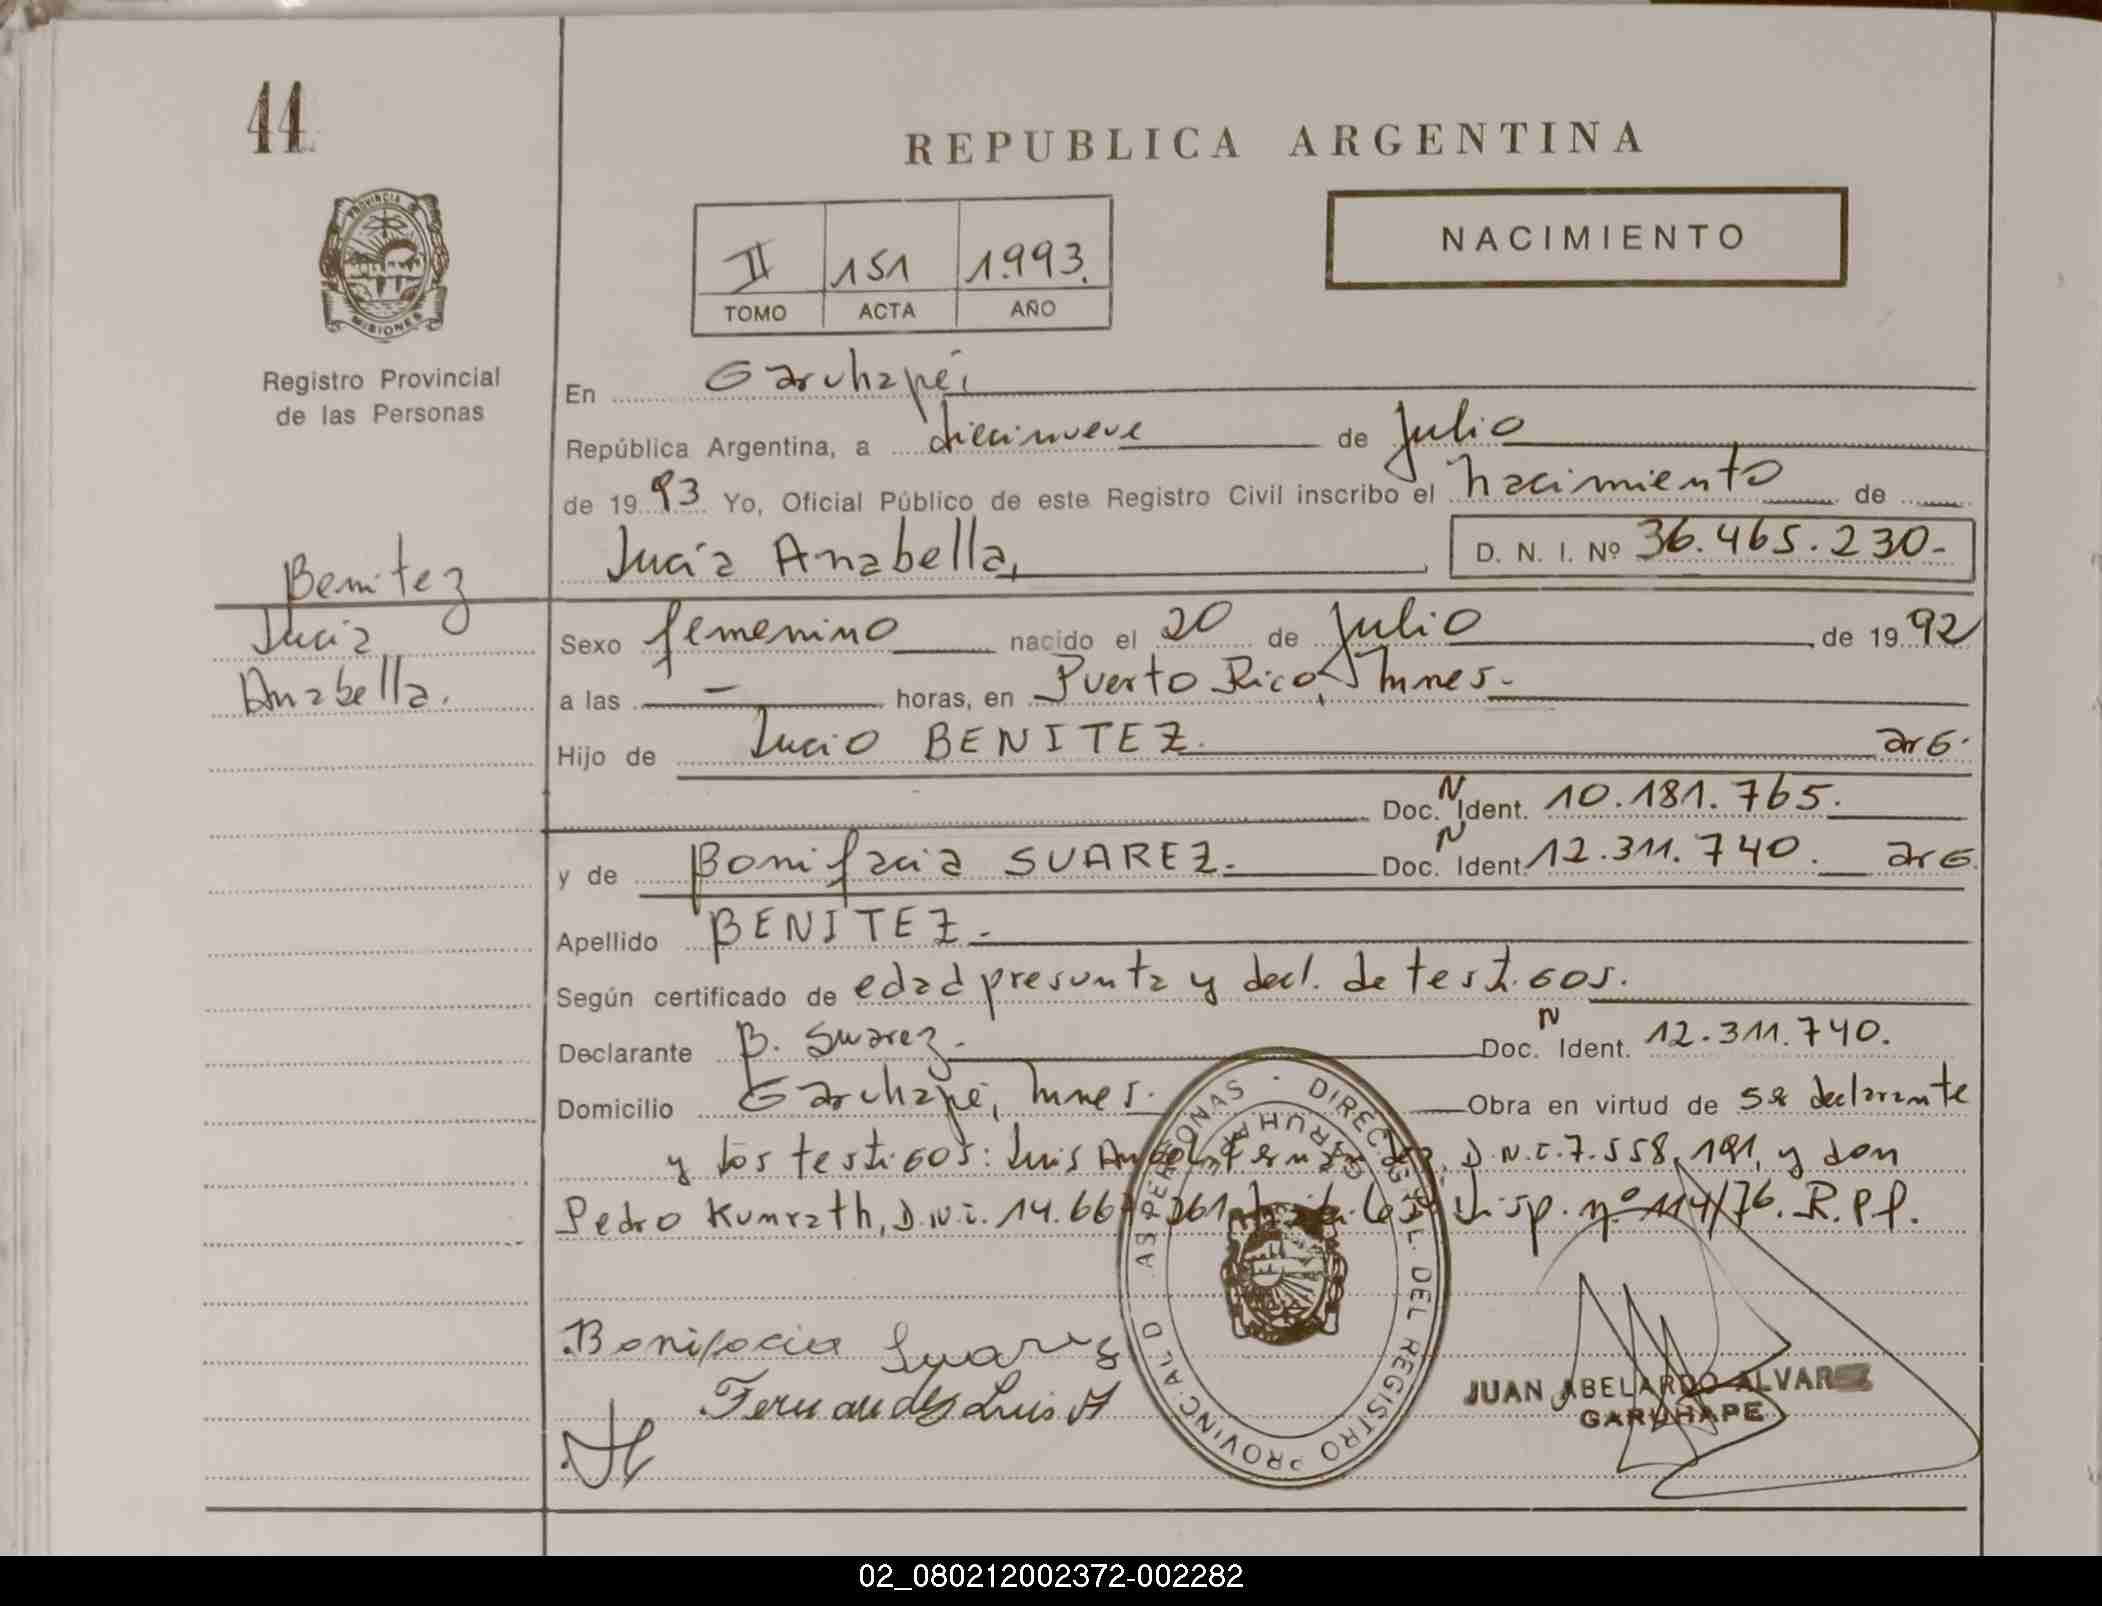 44
REPUBLICA ARGENTINA
PROVINCIA DE MISIONES
II 151 1.993.
TOMO ACTA AÑO
NACIMIENTO
Registro Provincial
de las Personas
En Garuhapé,
República Argentina, a diecinueve de Julio
de 1993 Yo, Oficial Público de este Registro Civil inscribo el nacimiento de
Lucía Anabella, D. N. I. Nº 36.465.230-
Benitez
Lucia
Anabella.
Sexo femenino nacido el 20 de Julio de 1992
a las — horas, en Puerto Rico, Mnes.
Hijo de Lucio BENITEZ. arG.
Doc. N Ident. 10.181.765.
y de Bonifacia SUAREZ. Doc. N Ident. 12.311.740. arG.
Apellido BENITEZ.
Según certificado de edad presunta y decl. de testigos.
Declarante B. Suarez. Doc. N Ident. 12.311.740.
Domicilio Garuhapé, Mnes. Obra en virtud de ser declarante
y los testigos: Luis Fernandez, D.N.I. 7.558.191, y don
Pedro Kunrath, D.N.I. 14.66 361 Disp. nº 114/76. R.P.P.
DIREC. GRAL. DEL REGISTRO PROVINCIAL D AS PERSONAS
GARUHAPE
Bonifacia Suarez
Fernandes Luis A
JUAN ABELARDO ALVAREZ
GARUHAPE
02_080212002372-002282